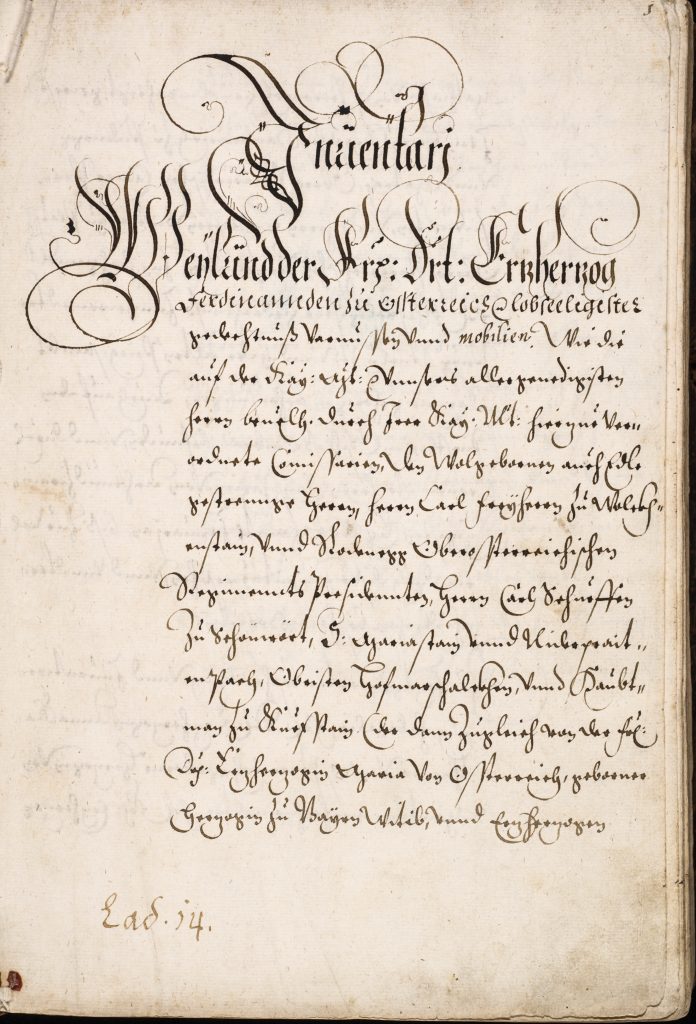 1
Inuentarj
Weylünd der Frx: Drt: Ertzherzog
Ferdinannden zu Össterreich lobseeligister
gedechtnuß Varnussen vnnd mobilien. Wie die
auf der Kay: May: Vnnsers allergenedigisten
herrn beuelh, durch Irer Kay: Mt: hierzue ver-
ordnete Comissarien, den Wolgebornen auch Edle
gestrennge Herrn, herrn Carl Freyherrn zu Wolckh-
enstain, vnnd Rodenegg Oberössterreichischen
Regimennts Presidennten, Herrn Carl Schurffen
zu Schönwört, Mariastain vnnd Niderprait-
en Pach, Obristen Hofmarschalckhen, vnnd Haubt-
man zu Kuefstain (der dann zugleich von der frl:
Drl: Ertzhertzogin Maria von Össterreich, geborner
Hertzogin zu Bayrn Witib, vnnd Ertzhertzogen
Lad. 14.